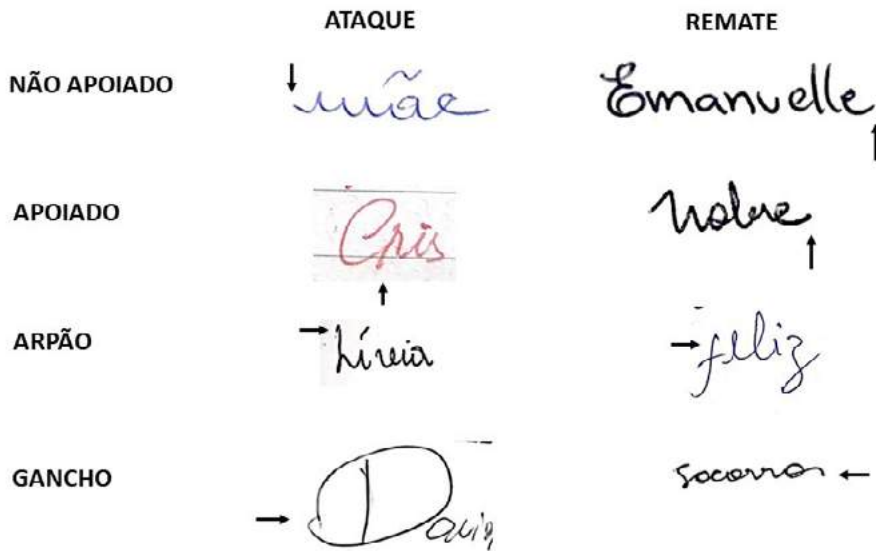 ATAQUE REMATE
NÃO APOIADO mãe Emanuelle
APOIADO Cris Nobre
ARPÃO Lívia feliz
GANCHO Davis socorro